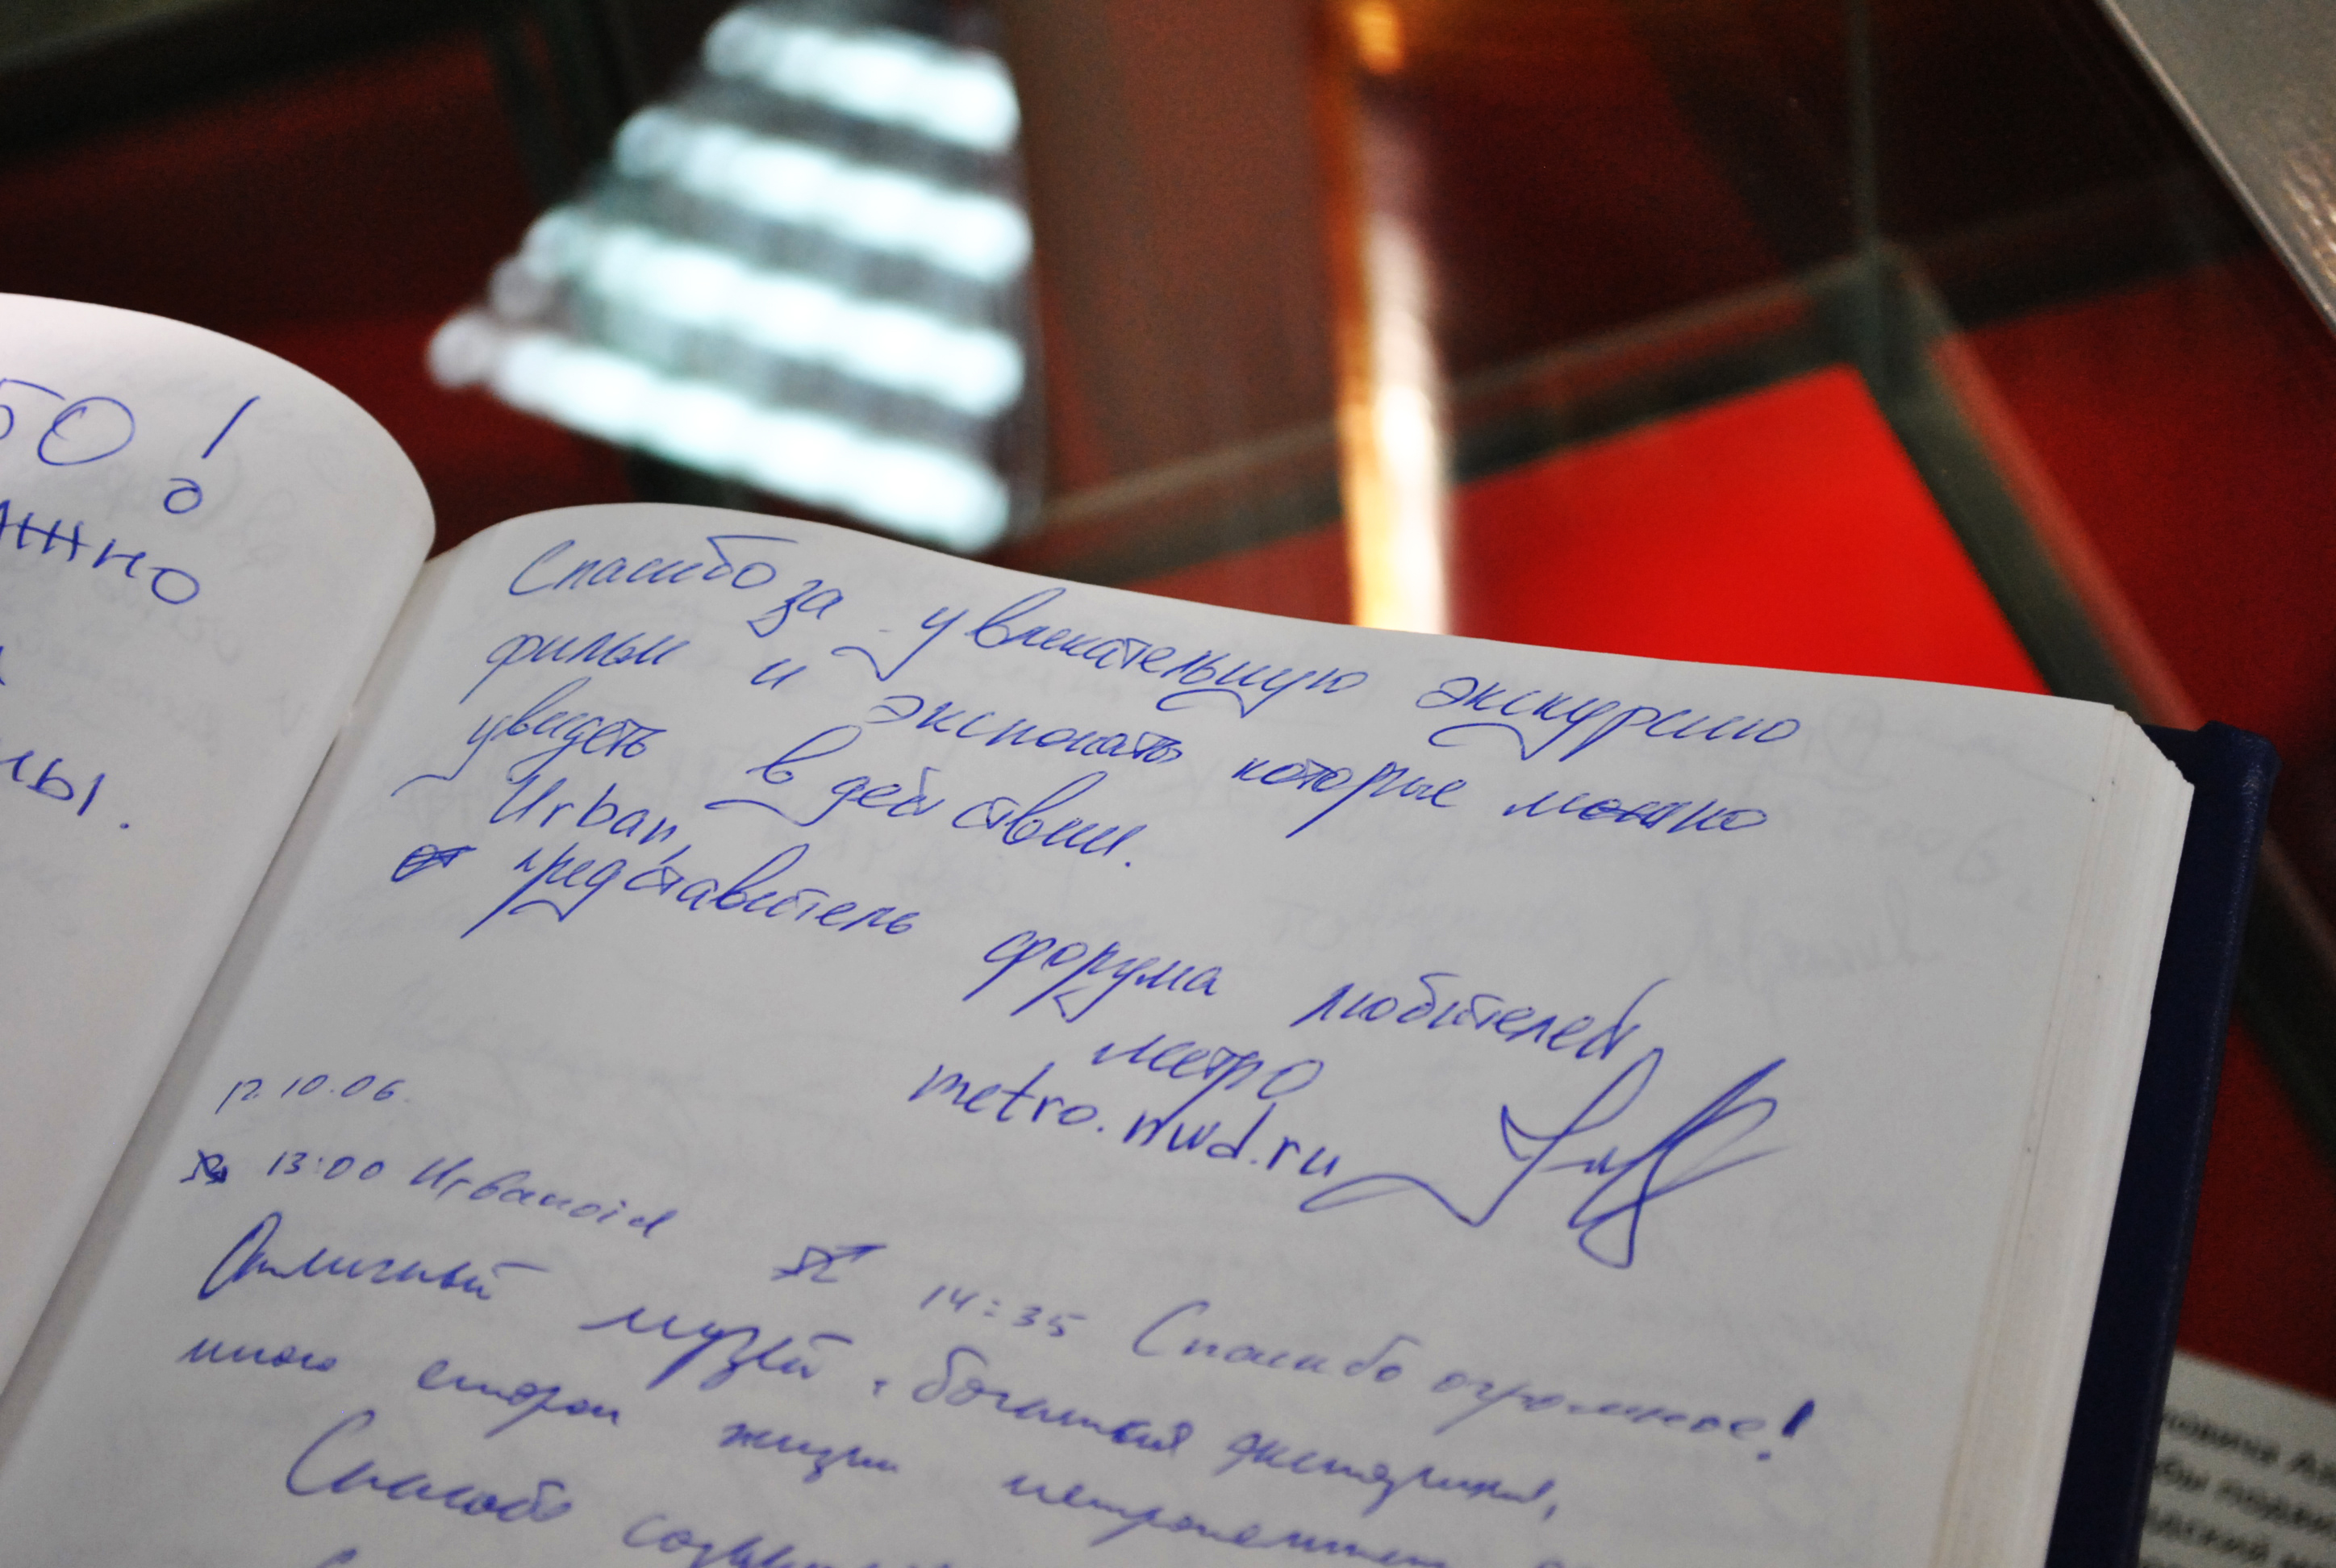 БО!
жно
ны.
Спасибо за увлекательную экскурсию
фильм и экспонаты которые можно
увидеть в действии.
Urban,
представитель форума любителей
метро
metro.nwd.ru
12.10.06.
13:00 Urbanoid
14:35 Спасибо огромное!
Отличный музей, богатая экспозиция,
много сторон жизни метрополитена
Спасибо